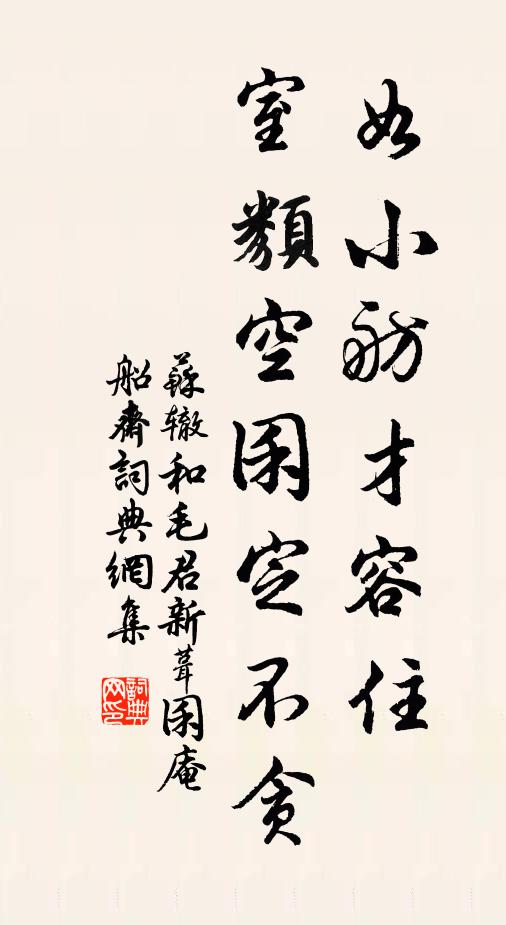 如小舫才容住
室類空囷定不貪
蘇辙和毛君新葺囷庵
船齋詞典網集
詞典
网印